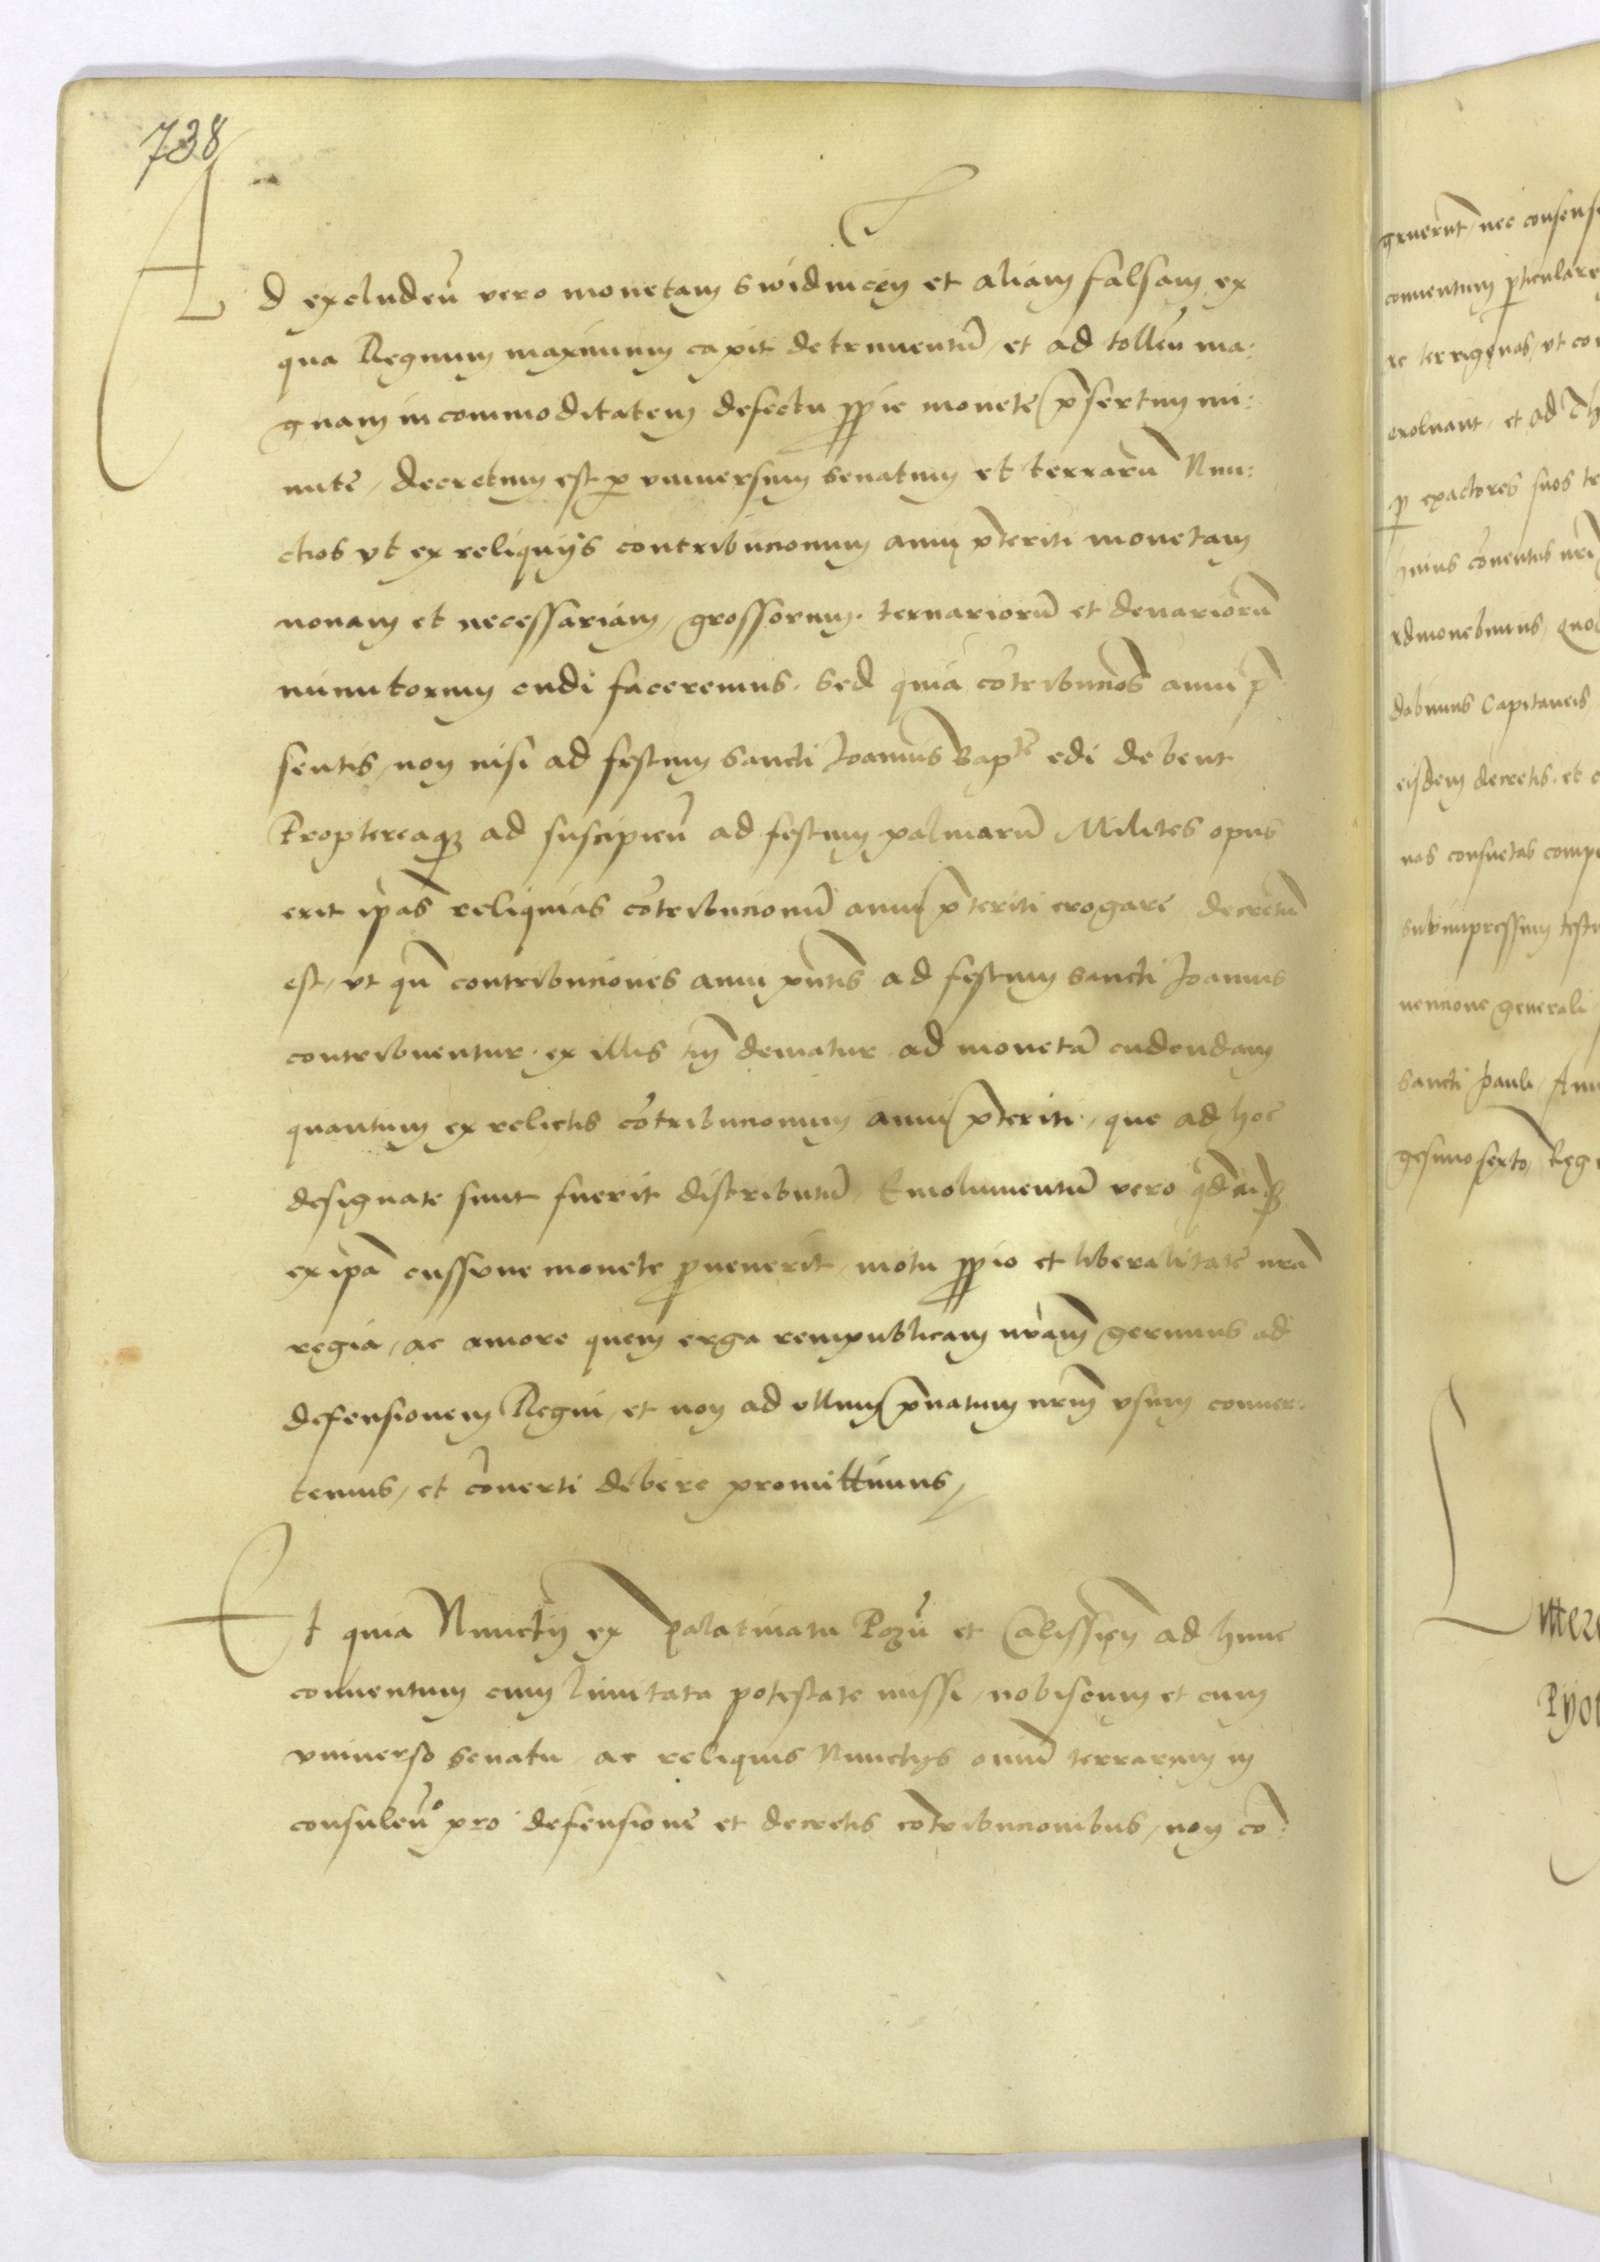 738
Ad excludeñ vero monetam Swidnicen et aliam falsam ex
qua Regnum maximum capit detrimentũ, et ad tolleñ ma:
gnam incommoditatem defectu ꝓprie monete p̃sertim mi:
nute, decretum est ꝑ vniversum senatum et terrarũ Nun:
ctios vt ex reliquijs contribucionum anni p̃teriti monetam
novam et necessariam, grossorum, ternariorũ et denariorũ
minutorum cudi faceremus. Sed quia cõtribucioẽs anni p̃
sentis, non nisi ad festum Sancti Joannis Bapte edi debent
Proptereaqꝫ ad suscipieñ ad festum palmarũ Milites opus
erit ip̃as reliquias cõtribucionũ anni p̃teriti erogare decretũ
est, vt qñ contribuciones anni pñtis ad festum Sancti Joannis
contribuentur, ex illis tm̃ dematur ad monetã cudendam
quantum ex relictis cõtribucionum anni p̃teriti, que ad hoc
designate sunt fuerit distributũ, Emolumentũ vero
ex ip̃a cussione monete ꝓvenerit, motu ꝓprio et liberalitate nr̃a
regia, ac amore quem erga rempublicam nr̃am gerimus ad
defensionem Regni, et non ad vllum p̃vatum nr̃m vsum conver:
temus, et cõverti debere promittimus,
Et quia Nunctij ex Palatinatu Pozñ et Calissien ad hunc
conventum cum limitata potestate missi, nobiscum et cum
vniverso senatu ac reliquis Nunctijs oĩm terrarum in
consuleño pro defensione et decretis cõtribucionibus, non cõ:
gruerũt, nec consens
conventum ꝑticulare
re terrigenas, vt co
exolvant, et ad
ꝑ exactores suos te
huius cõventus nr̃i
admonebimus, quo
dabimus Capitaneis
eisdem decretis, et
nas consuetas comp
subimpressum test
nencione generali
Sancti Pauli, Ann
gesimosexto, Reg